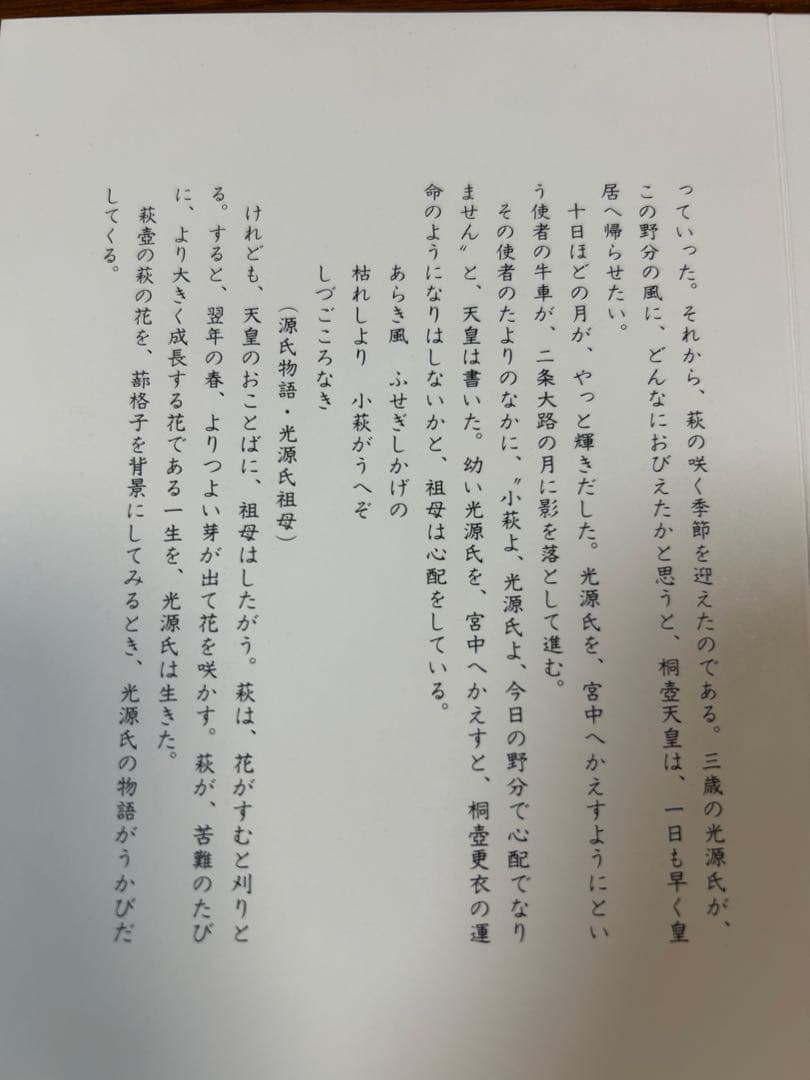 っていった。それから、萩の咲く季節を迎えたのである。三歳の光源氏が、
この野分の風に、どんなにおびえたかと思うと、桐壺天皇は、一日も早く皇
居へ帰らせたい。
十日ほどの月が、やっと輝きだした。光源氏を、宮中へかえすようにとい
う使者の牛車が、二条大路の月に影を落として進む。
その使者のたよりのなかに、〝小萩よ、光源氏よ、今日の野分で心配でなり
ません〟と、天皇は書いた。幼い光源氏を、宮中へかえすと、桐壺更衣の運
命のようになりはしないかと、祖母は心配をしている。
あらき風　ふせぎしかげの
枯れしより　小萩がうへぞ
しづごころなき
（源氏物語・光源氏祖母）
けれども、天皇のおことばに、祖母はしたがう。萩は、花がすむと刈りと
る。すると、翌年の春、よりつよい芽が出て花を咲かす。萩が、苦難のたび
に、より大きく成長する花である一生を、光源氏は生きた。
萩壺の萩の花を、蔀格子を背景にしてみるとき、光源氏の物語がうかびだ
してくる。